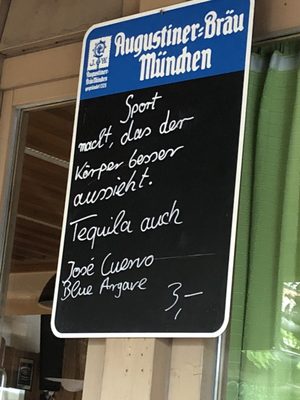 Augustiner-Bräu
München
J.W.
Augustiner
Bräu München
Sport
macht, das der
Körper besser
aussieht.
Tequila auch
José Cuervo
Blue Argave 3,-